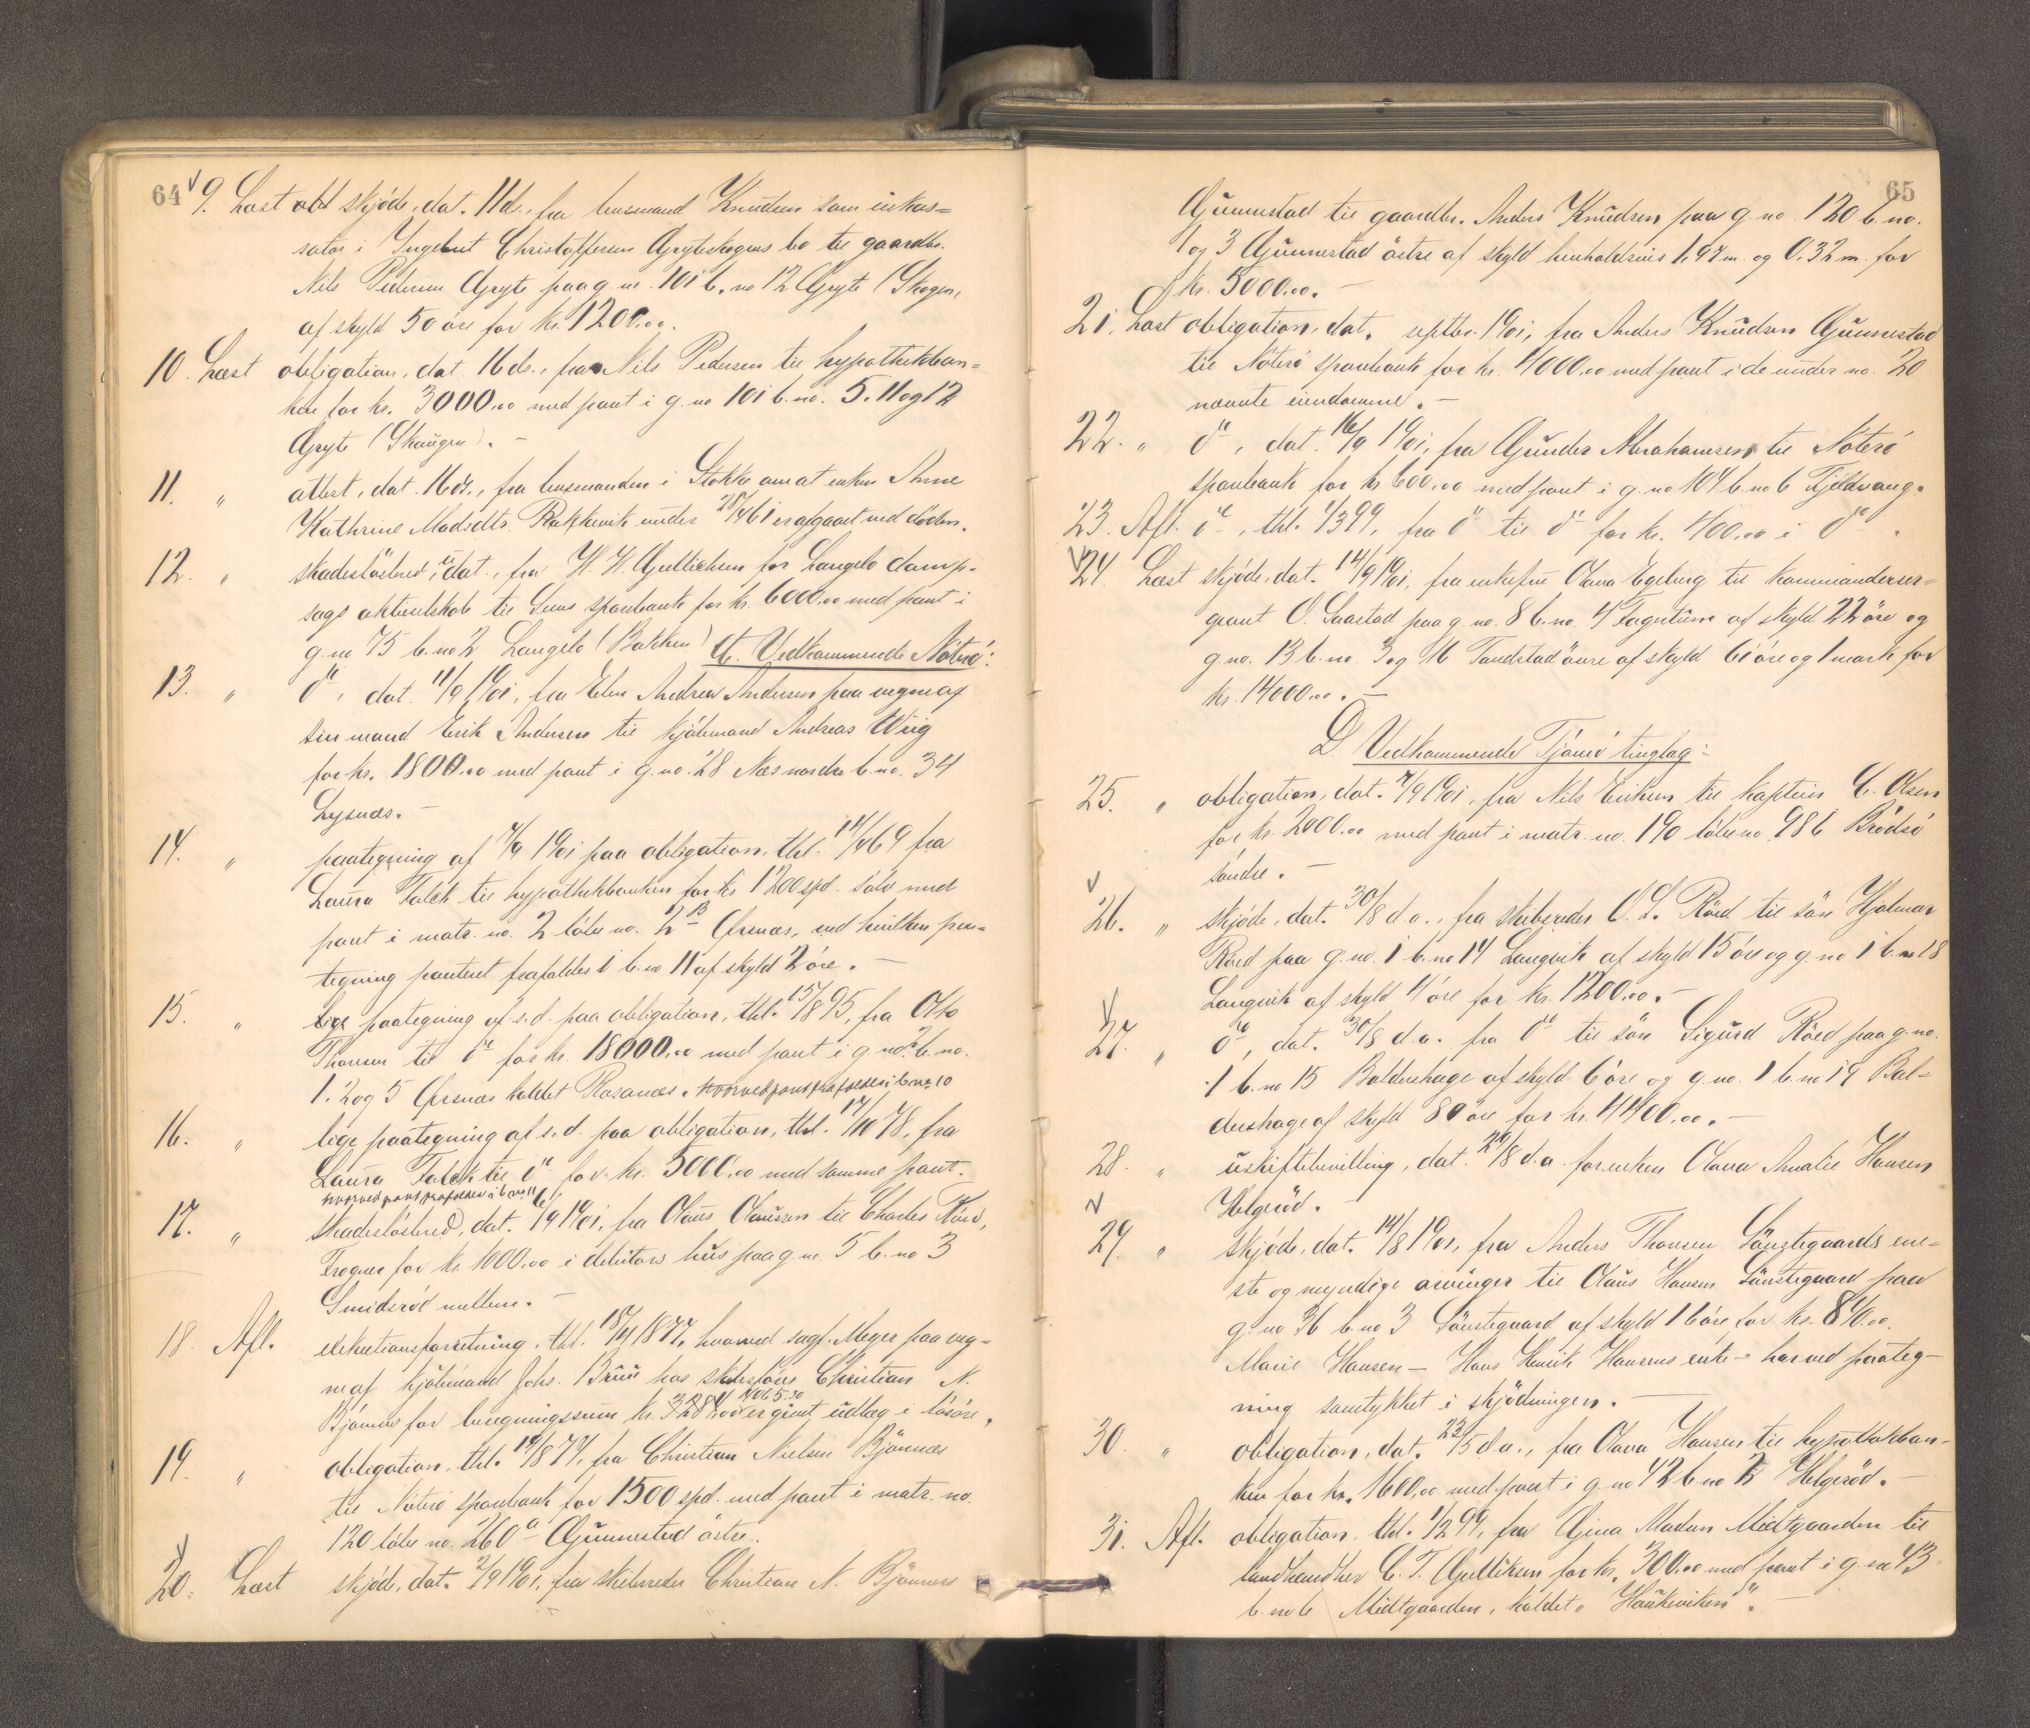 64
9. Læst skjøde, dat. 11 ds., fra lensmand Knudsen som inkas=
sator i Ingebret Christoffersen Gryteskogens bo til gaardbr.
Nils Pedersen Gryte paa g. no. 101 b. no 12 Gryte (Skogen,
af skyld 50 öre for kr. 1200.00.
10. Læst obligation, dat. 16 ds., fra Nils Pedersen til hypothekban=
ken for kr. 3000.00 med pant i g. no 101 b. no. 5. 11 og 12
Gryte (Skaugen). -
11. " attest, dat. 16 ds., fra lensmanden i Stokke om at enken Anne
Kathrine Madsdtr. Rakkevik under er afgaaet ved döden.
12. " skadeslösbrev, dat., fra H. H. Gullichsen for Langelo damp-
sags aktieselskab til Sems sparebank for kr. 6000.00 med pant i
g. no 75 b. no 2 Langelo (Bakken) C. Vedkommende Nöterö:
13. " do, dat. 11/9 1901, fra Elen Andrea Andersen paa vegne af
sin mand Erik Andersen til kjöbmand Andreas Wiig
for kr. 1800.00 med pant i g. no. 28 Næs nordre b. no. 34
Lysnæs. -
14. " paategning af 7/9 1901 paa obligation, thl. 14/4 69 fra
Laura Falck til hypothekbanken for kr 1200 spd. sölv med
pant i matr. no. 2 löbe no. 2 B Örsnæs, ved hvilken paa=
tegning panteret frafaldes i b. no 11 af skyld 2 öre. -
15. " lige paategning af s. d. paa obligation, thl. 15/8 95, fra Otto
Thorsen til do for kr. 18000.00 med pant i g. no 2 b. no.
1. 2 og 5 Örsnæs kaldet Rosanæs. hvorved pant frafaldes i b. no. 10
16. " lige paategning af s. d. paa obligation, thl. 17/10 78, fra
Laura Falck til do for kr. 5000.00 med samme pant.
hvorved pant frafaldes i b. no. 11
17. " skadeslösbrev, dat. 6/9 1901, fra Olaus Olaussen til Charles
Trogne for kr. 1000.00 i debitors hus paa g. no. 5 b. no 3
Smidsröd mellem. -
18. Afl. exekutionsforretning, thl. 1877, hvorved sagf. Meyer paa veg-
ne af kjöbmand Johs. Bruu hos skibsförer Christian N.
Bjönnes for beregningssum kr. er givet udlæg i lösöre.
19. " obligation, thl. 14/8 77, fra Christian Nielsen Bjönnæs
til Nöterö sparebank for 1500 spd. med pant i matr. no.
120 löbe no. 260 a Gunnestad östre.
20. Læst skjöde, dat. 7/9 1901, fra skibsreder Christian N. Bjönnes
65
Gunnestad til gaardbr. Anders Knudsen paa g. no. 120 b. no.
1 og 3 Gunnestad östre af skyld henholdsvis 1.97 m. og 0.32 m. for
kr. 5000.00. -
21. Læst obligation, dat. septbr. 1901, fra Anders Knudsen Gunnestad
til Nöterö sparebank for kr. 4000.00 med pant i de under no. 20
nævnte eiendomme. -
22. " do, dat. 16/9 1901, fra Gunder Abrahamsen til Nöterö
sparebank for kr 600.00 med pant i g. no 104 b. no 6 Fjeldvang.
23. Afl. do, thl. 4/3 99, fra do til do for kr. 400.00 i do.
24. Læst skjöde, dat. 14/9 1901, fra enkefru Olava Egeberg til kommandérser=
geant O. Saastad paa g. no. 8 b. no. 4 Fagertun af skyld 22 öre og
g. no. 13 b. no. 3 og 16 Tandstad övre af skyld 61 öre og 1 mark for
kr. 14000.00. -
D. Vedkommende Tjömö tinglag:
25. " obligation, dat. 7/9 1901, fra Nils Eriksen til kaptein C. Olsen
for kr. 2000.00 med pant i matr. no. 190 löbe no. 986 Brödsö
söndre. -
26. " skjöde, dat. 30/8 d. a., fra skibsreder O. L. Röed til sön Hjalmar
Röed paa g. no. 1 b. no 14 Langvik af skyld 15 öre og g. no 1 b. no 18
Langvik af skyld 4 öre for kr. 1200.00. -
27. " do, dat. 30/8 d. a. fra do til sön Sigurd Röed paa g. no.
1 b. no 15 Baldershage af skyld 6 öre og g. no. 1 b. no 19 Bal=
dershage af skyld 80 öre for kr. 4400.00. -
28. " uskiftebevilling, dat. 29/8 d. a. for enken Olava Amalie Hansen
Helgeröd.
29. " skjöde, dat. 14/8 1901, fra Anders Thorsen Sönstegaards ene-
ste og myndige arvinger til Olaus Hansen Sönstegaard paa
g. no 36 b. no 3 Sönstegaard af skyld 16 öre for kr. 840.00.
Marie Hansen - Hans Henrik Hansens enke - har ved paateg-
ning samtykket i skjödningen. -
30. " obligation, dat. 23/5 d. a., fra Olava Hansen til hypothekban-
ken for kr. 1600.00 med pant i g. no 42 b. no 2 Helgeröd. -
31. Afl. obligation, thl. 1/2 99, fra Gina Madsen Midtgaarden til
landhandler C. T. Gulliksen for kr. 300.00 med pant i g. no 43
b. no 6 Midtgaarden, kaldet "Haukeviken". -